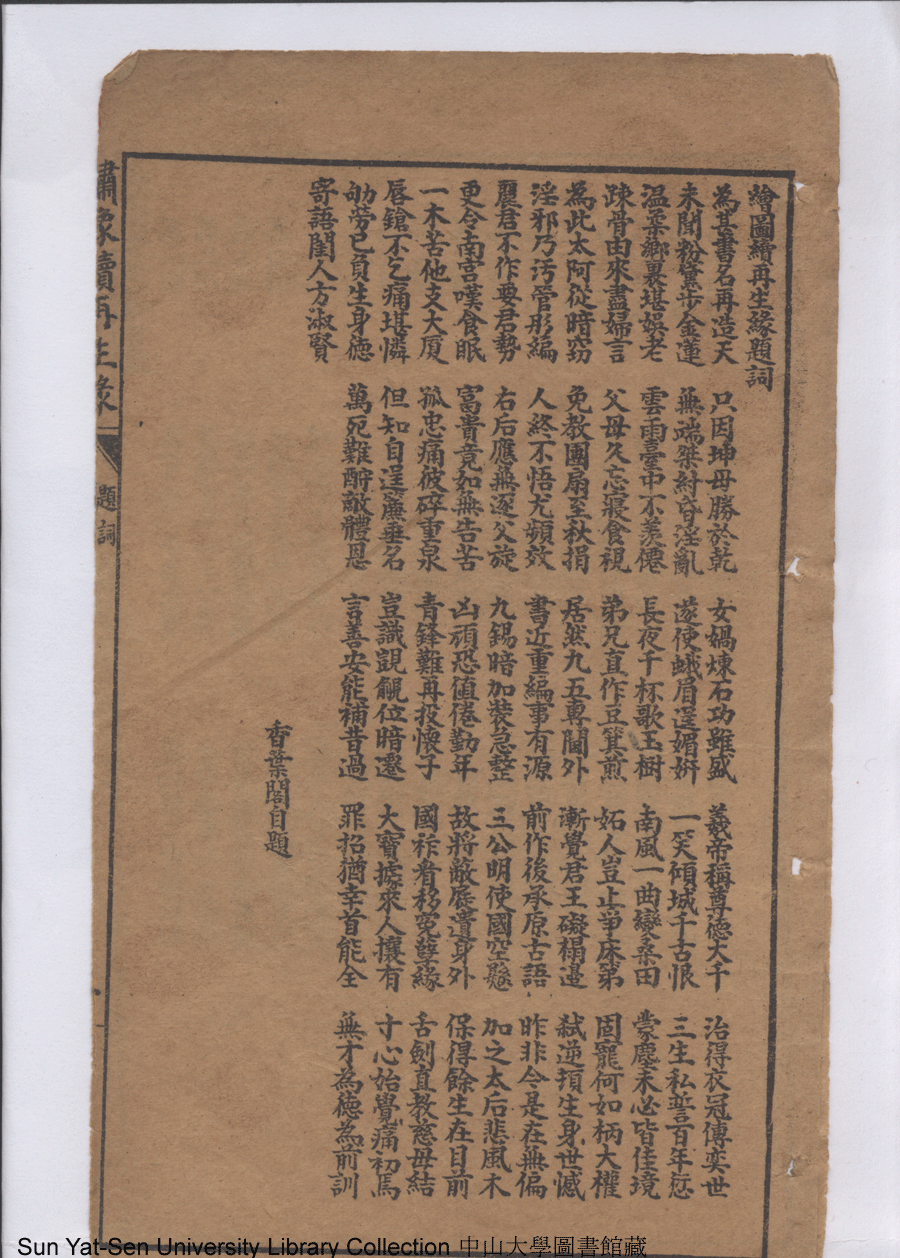 繪圖續再生緣題詞
為甚書名再造天　只因坤母勝於乾　女媧煉石功雖盛　羲帝稱尊德大千　治得衣冠傳奕世
未聞粉黛步金蓮　無端桀紂昏淫亂　遂使蛾眉逞媚妍　一笑傾城千古恨　三生私誓百年愆
溫柔鄉裏堪娛老　雲雨臺中不羨僊　長夜千杯歌玉樹　南風一曲變桑田　蒙塵未必皆佳境
疎骨由來盡婦言　父母久忘寢食視　弟兄直作豆箕煎　妬人豈止爭床第　固寵何如柄大權
為此太阿從暗竊　免教團扇至秋捐　居然九五專閫外　漸覺君王礙榻邊　弒逆頊生身世憾
淫邪乃污管彤編　人終不悟尤頻效　書近重編事有源　前作後承原古語　昨非今是在無偏
麗君不作要君勢　右后應無逐父旋　九錫暗加裝急整　三公明使國空懸　加之太后悲風木
更令南宮嘆食眠　富貴竟如無告苦　凶頑恐值倦勤年　故將敝屣遺身外　保得餘生在目前
一木苦他支大厦　孤忠痛彼碎重泉　青鋒難再投懷子　國祚看移冤孽緣　舌劍直教慈母結
唇鎗不乞痛堪憐　但知自逞簾垂名　豈識覬覦位暗遷　大寶據來人攘有　寸心始覺痛初焉
劬勞已負生身德　萬死難酧敵體恩　言善安能補昔過　罪招猶幸首能全　無才為德為前訓
寄語閨人方淑賢
香葉閣自題
繡像續再生緣　題詞
Sun Yat-Sen University Library Collection 中山大學圖書館藏